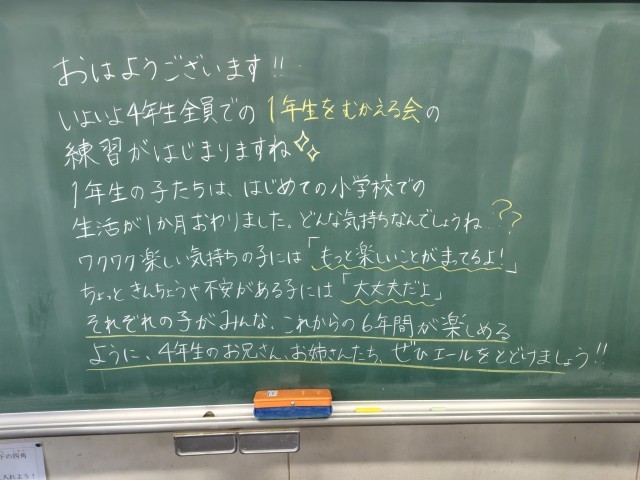 おはようございます!!
いよいよ4年生全員での1年生をむかえる会の
練習がはじまりますね
1年生の子たちは、はじめての小学校での
生活が1か月おわりました。どんな気持ちなんでしょうね…??
ワクワク楽しい気持ちの子には「もっと楽しいことがまってるよ!」
ちょっときんちょうや不安がある子には「大丈夫だよ」
それぞれの子がみんな、これからの6年間が楽しめる
ように、4年生のお兄さん、お姉さんたち、ぜひエールをとどけましょう!!
下の四角
入れよう!